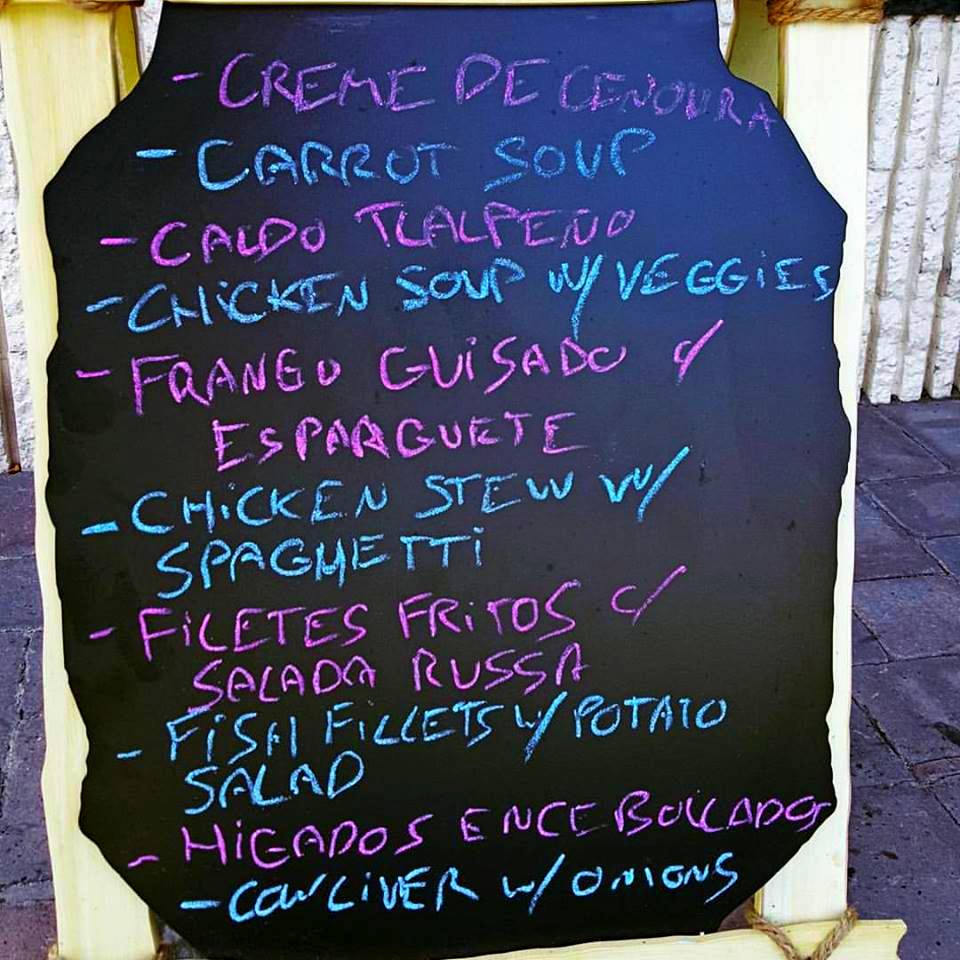 - CREME DE CENOURA
- CARROT SOUP
- CALDO TLALPENO
- CHiCKEN SOUP W/ VEGGIES
- FRANGO GUiSADO c/
ESPARGUETE
- CHiCKEN STEW W/
SPAGHETTi
- FiLETES FRiTOS C/
SALADA RUSSA
- FiSH FiLLETS W/ POTATO
SALAD
- HiGADOS ENCEBOLLADOS
- COW LiVER W/ ONIONS